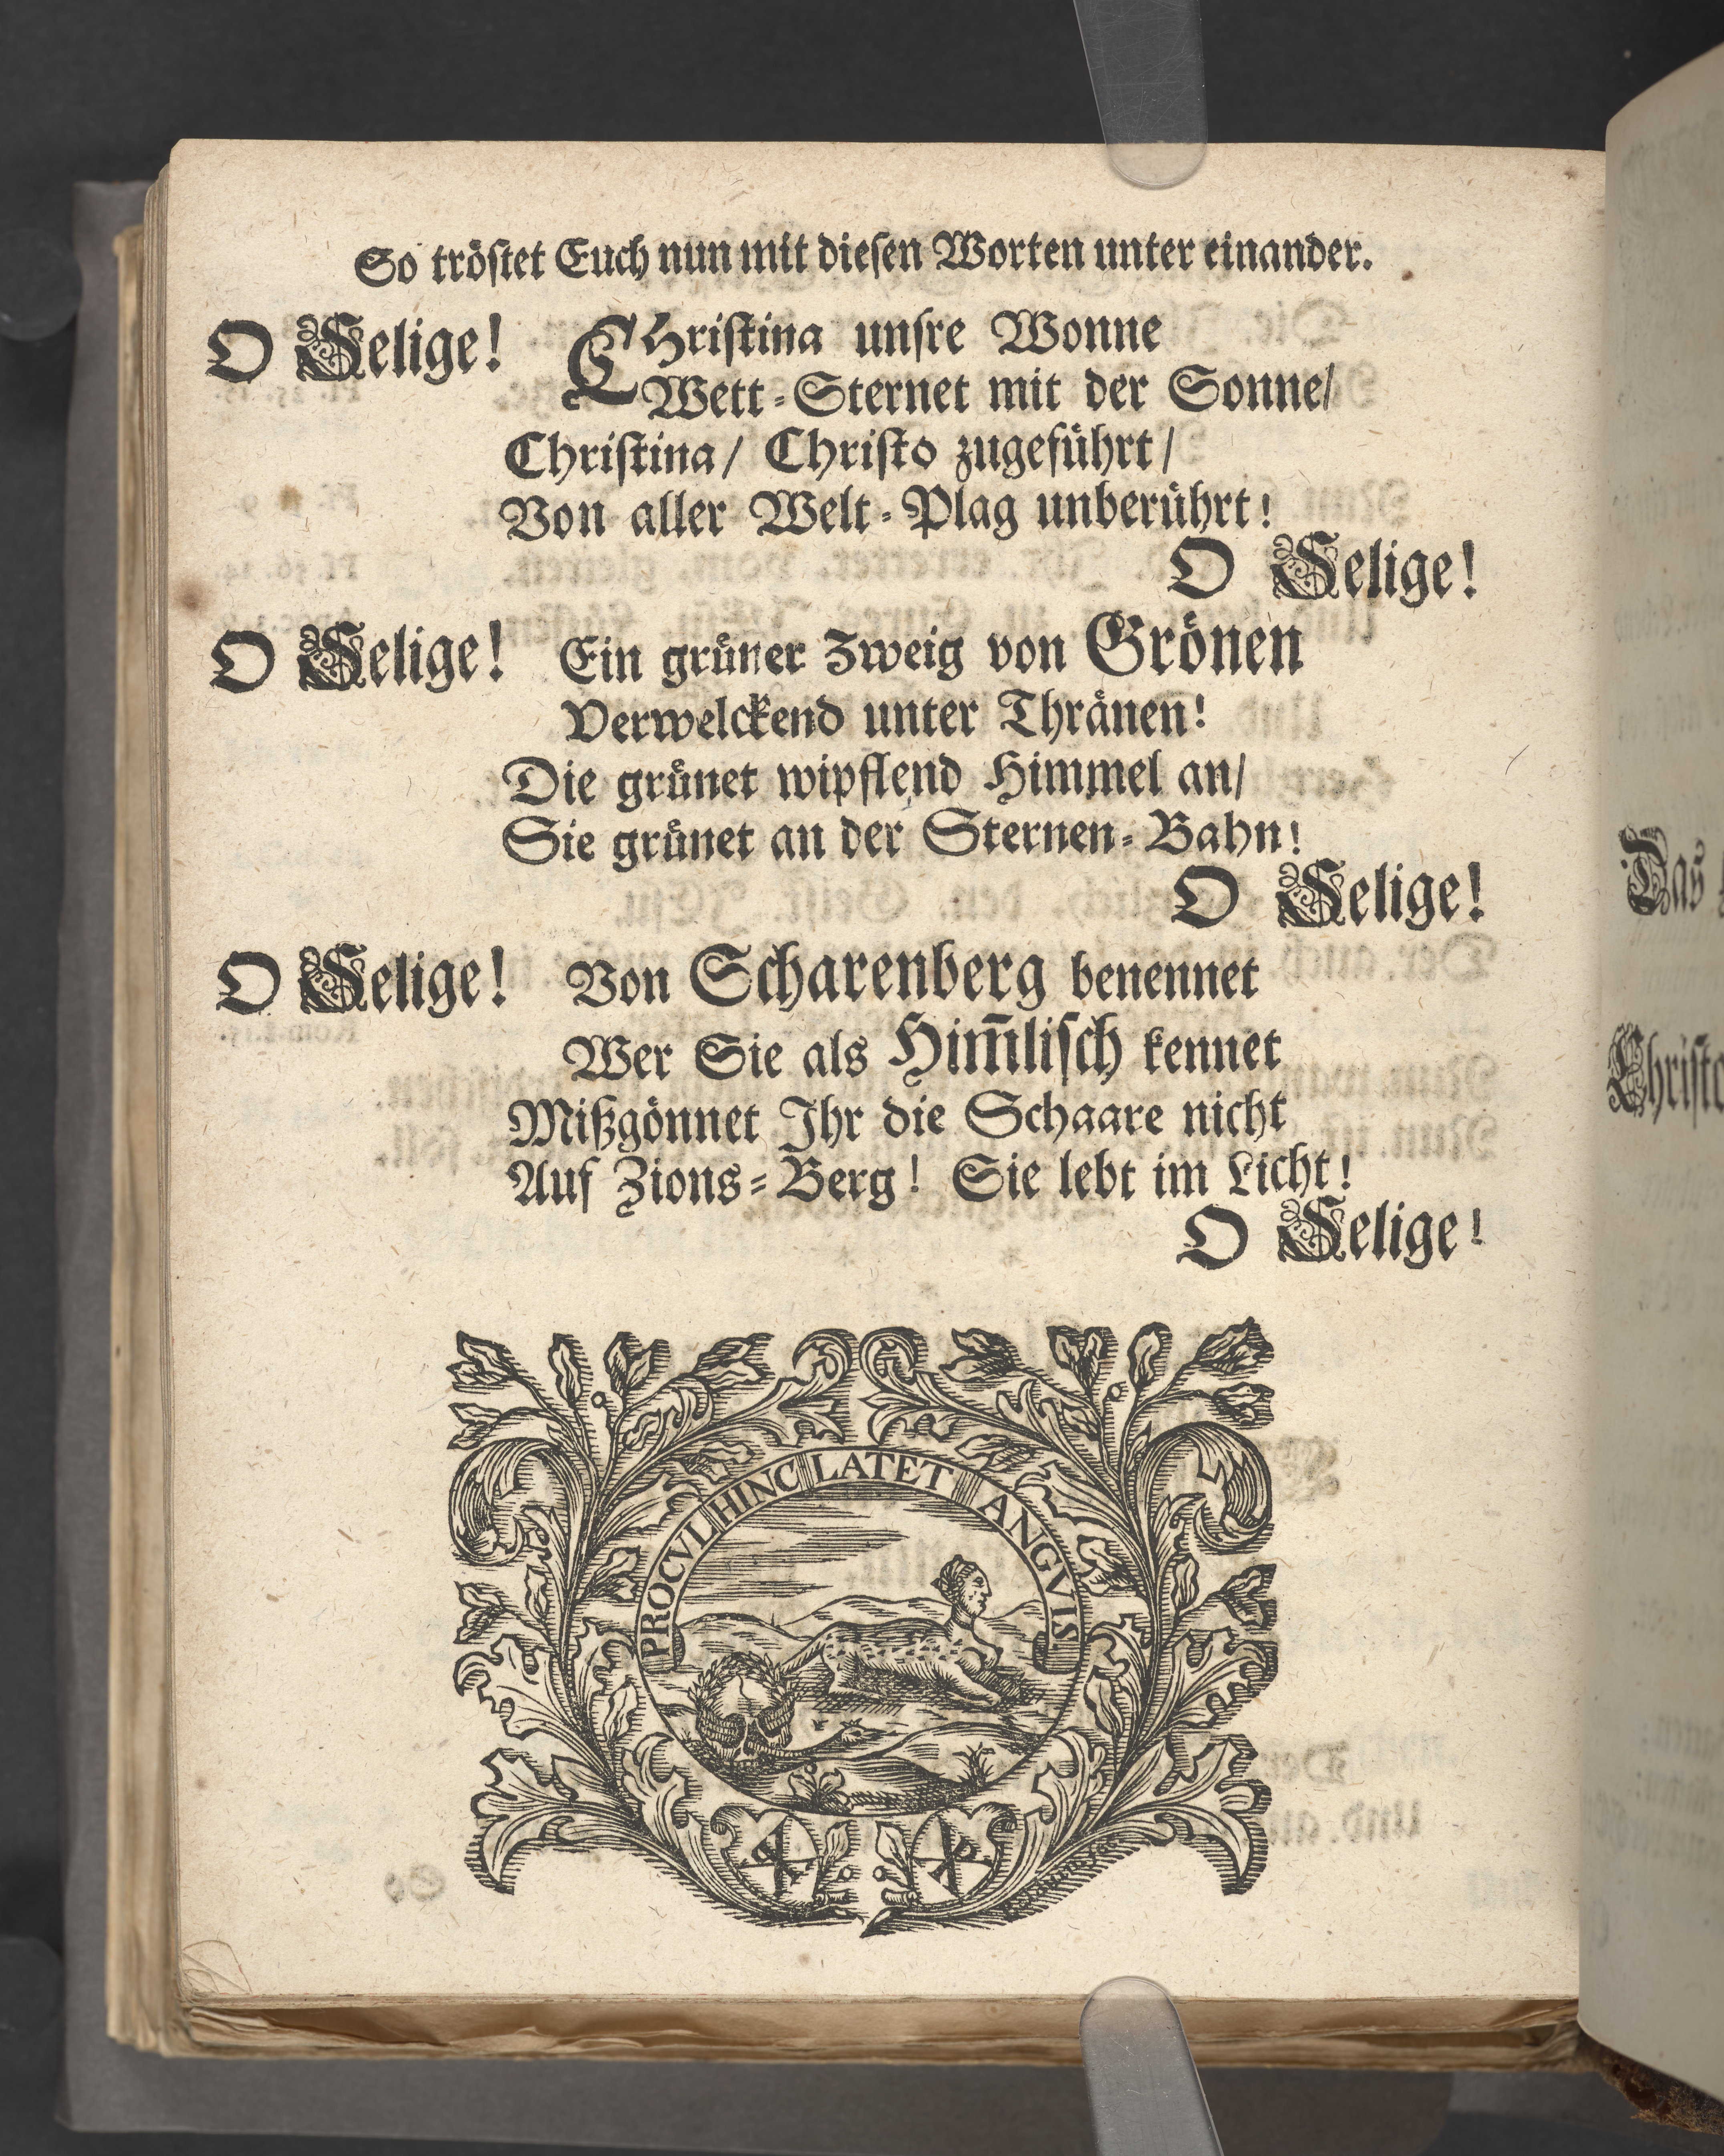 So tröſtet Euch nun mit dieſen Worten unter einander.
O Selige! CHriſtina unſre Wonne
Wett-Sternet mit der Sonne/
Chriſtina/ Chriſto zugeführt/
Von aller Welt-Plag unberührt!
O Selige!
O Selige! Ein grüner Zweig von Grönen
Verwelckend unter Thränen!
Die grünet wipflend Himmel an/
Sie grünet an der Sternen-Bahn!
O Selige!
O Selige! Von Scharenberg benennet
Wer Sie als Him̄liſch kennet
Mißgönnet Ihr die Schaare nicht
Auf Zions-Berg! Sie lebt im Licht!
O Selige!
PROCVL HINC LATET ANGVIS
Das
Chriſto